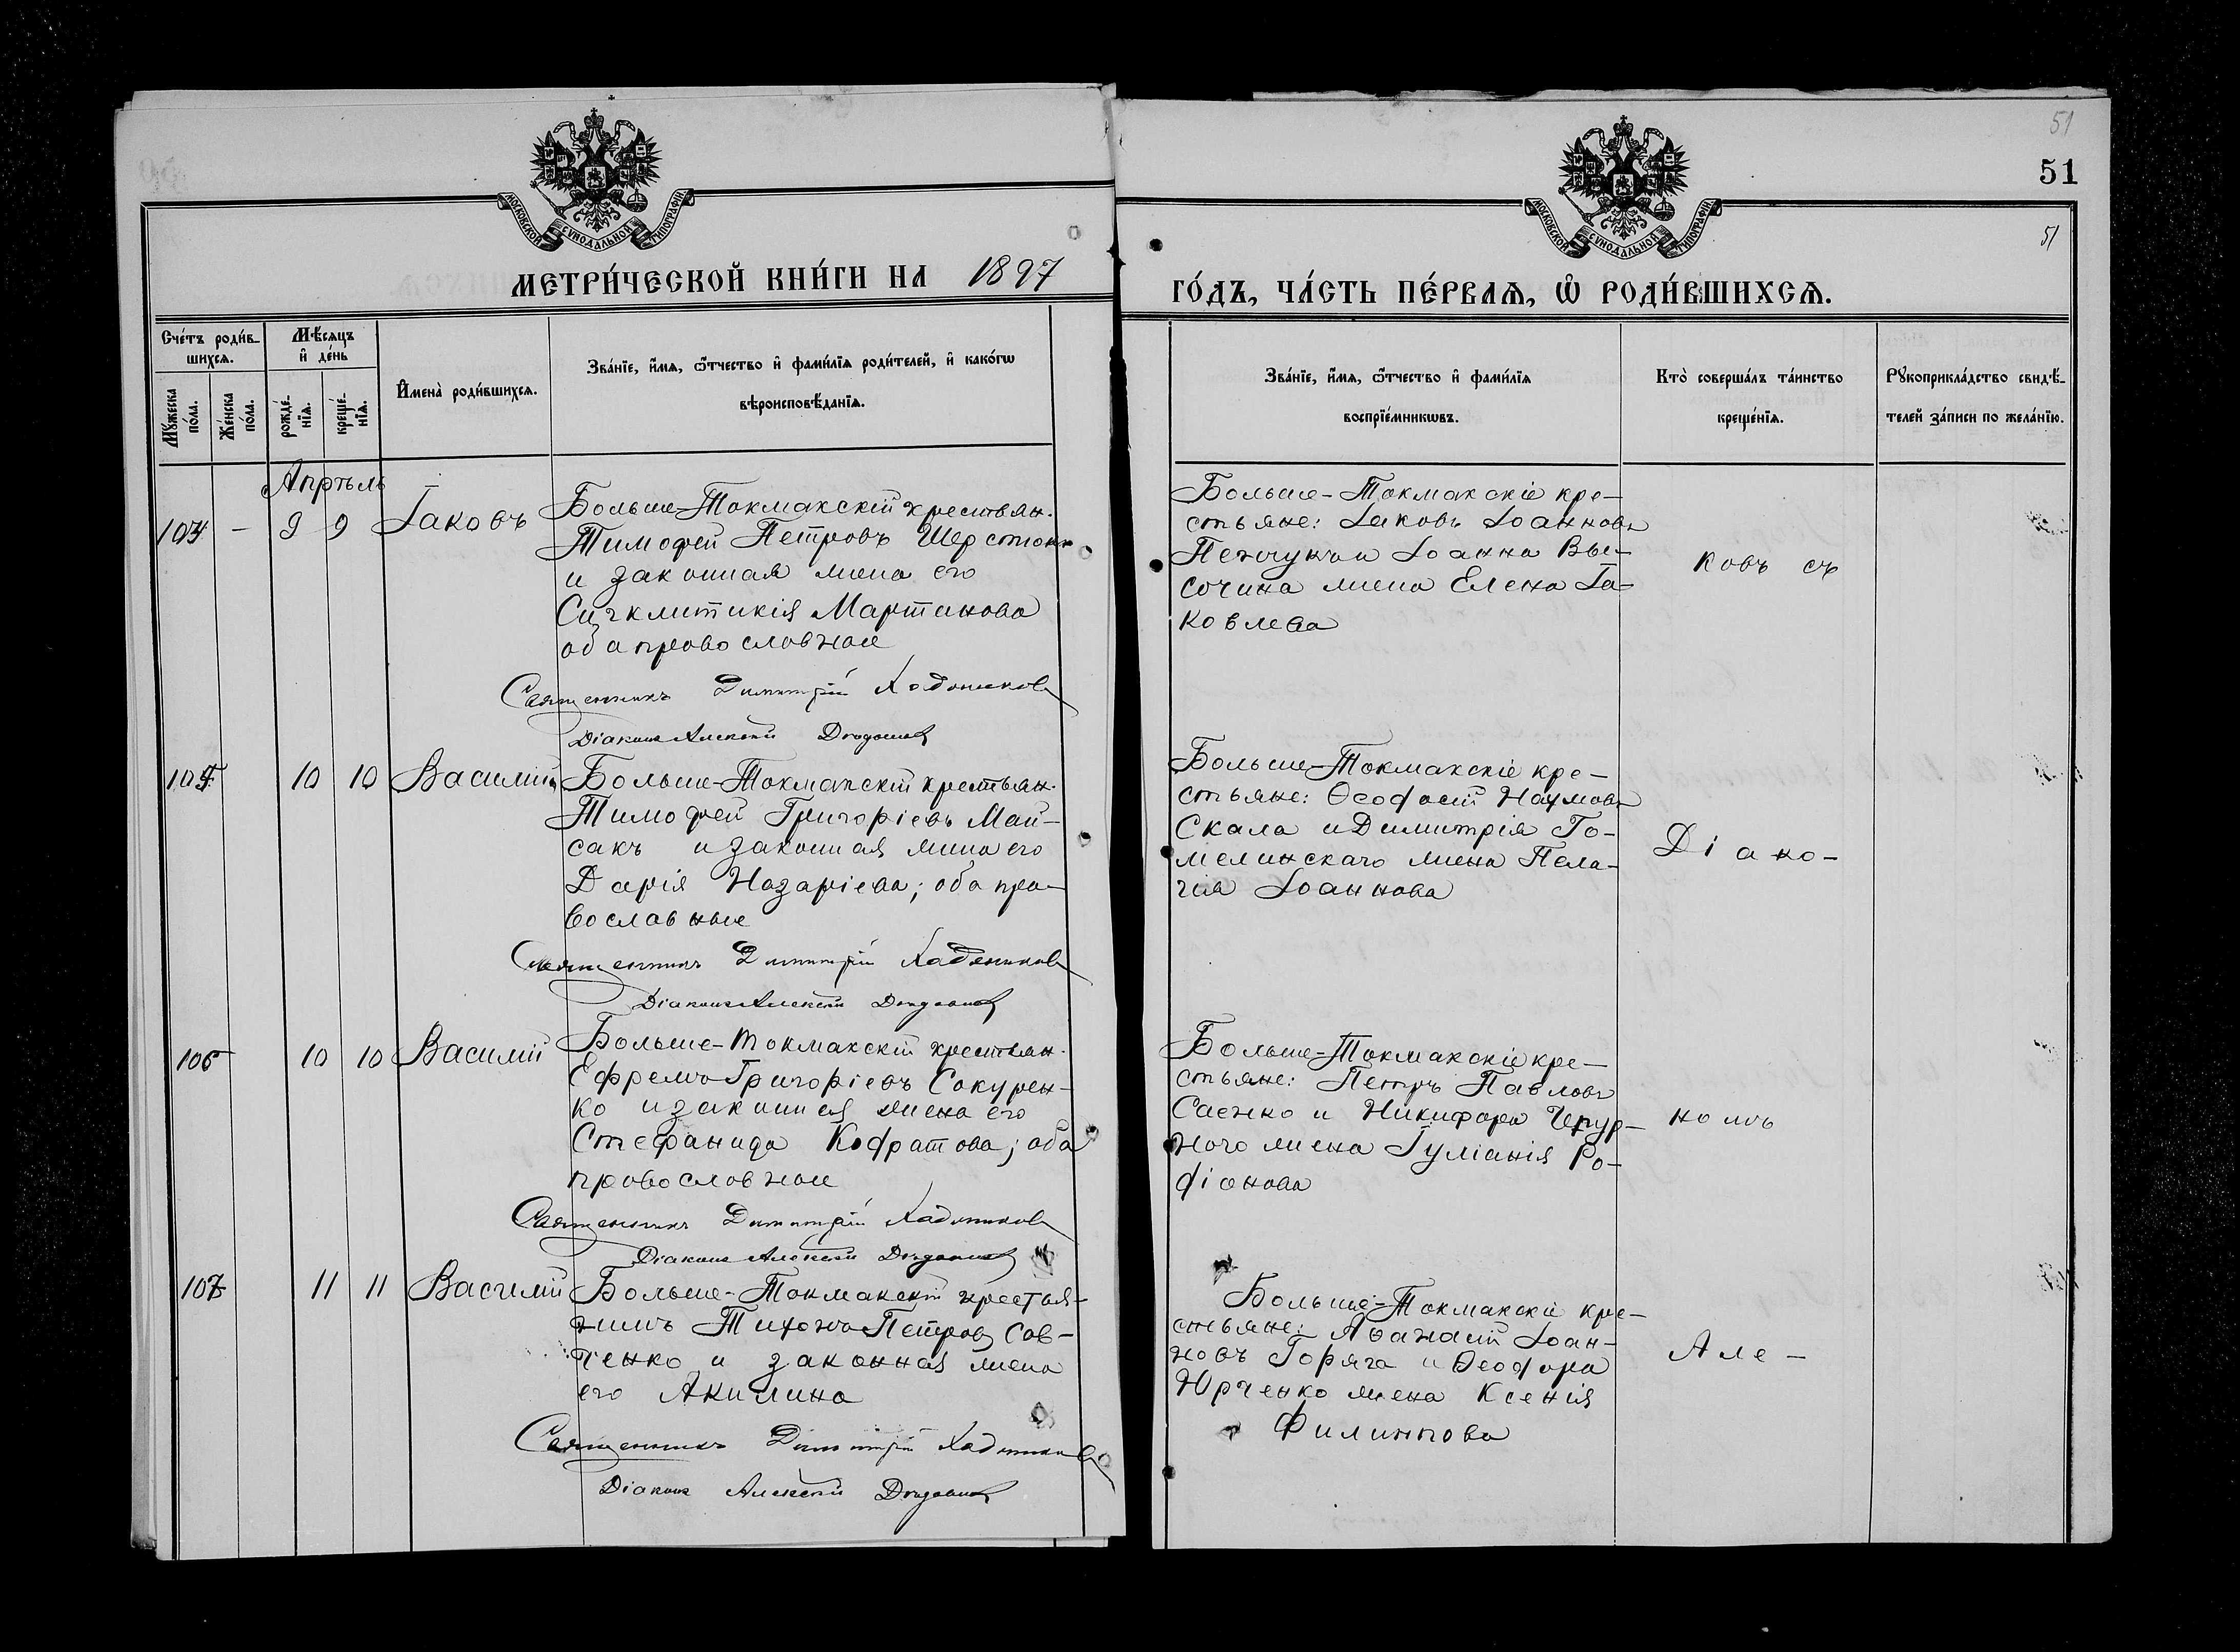 51
51
51
МОСКОВСКОЙ СѴНОДАЛЬНОЙ ТИПОГРАФІИ
МОСКОВСКОЙ СѴНОДАЛЬНОЙ ТИПОГРАФІИ
МЕТРИ́ЧЕСКОЙ КНИ́ГИ НА 1897
ГО́ДЪ, ЧА́СТЬ ПЕ́РВАѦ, Ѽ РОДИ́ВШИХСѦ.
Сче́тъ роди́в-
шихсѧ.
Мѣ́сѧцъ
и҆ де́нь
Мꙋ́жеска
по́ла.
Же́нска
по́ла.
рожде́-
нїѧ.
креще́-
нїѧ.
И҆мена̀ роди́вшихсѧ.
Зва́нїе, и҆́мѧ, ѻ҆́тчество и҆ фами́лїѧ роди́телей, и҆ како́гѡ
вѣроисповѣ́данїѧ.
Зва́нїе, и҆́мѧ, ѻ҆́тчество и҆ фами́лїѧ
воспрїе́мникѡвъ.
Кто̀ соверша́лъ та́инство
креще́нїѧ.
Рꙋкоприкла́дство свидѣ́-
телей за́писи по жела́нїю.
Апрѣль
104 - 9 9 Іаковъ
Больше-Токмакскій крестьян.
Тимофей Петровъ Шерстюкъ
и законная жена его
Сигклитикія Мартинова
оба православные
Священникъ Димитрій
Діаконъ Алексій
Больше-Токмакскіе кре-
стьяне: Іаковъ Іоанновъ
и Іоанна Вы-
сочина жена Елена Іа-
ковлева
ковъ съ
105 10 10 Василій
Больше-Токмакскій крестьян.
Тимофей Григоріевъ Май-
сакъ и законная жена его
Дарія Назаріева; оба пра-
вославные
Священникъ Димитрій
Діаконъ Алексій
Больше-Токмакскіе кре-
стьяне: Ѳеодосій Наумовъ
Скала и Димитрія Го-
мелинскаго жена Пела-
гія Іоаннова
Діако-
106 10 10 Василій
Больше-Токмакскій крестьян.
Ефремъ Григоріевъ Сакурен-
ко и законная жена его
Стефанида Кодратова; оба
православные
Священникъ Димитрій
Діаконъ Алексій
Больше-Токмакскіе кре-
стьяне: Петръ Павловъ
Саенко и Никифора Чепур-
ного жена Іуліанія Ро-
діонова
номъ
107 11 11 Василій
Больше-Токмакскій крестья-
нинъ Тихонъ Петровъ Сав-
ченко и законная жена
его Акилина
Священникъ Димитрій
Діаконъ Алексій
Больше-Токмакскіе кре-
стьяне: Аѳанасій Іоан-
новъ Горяга и Ѳеодора
Юрченко жена Ксенія
Филиппова
Але-